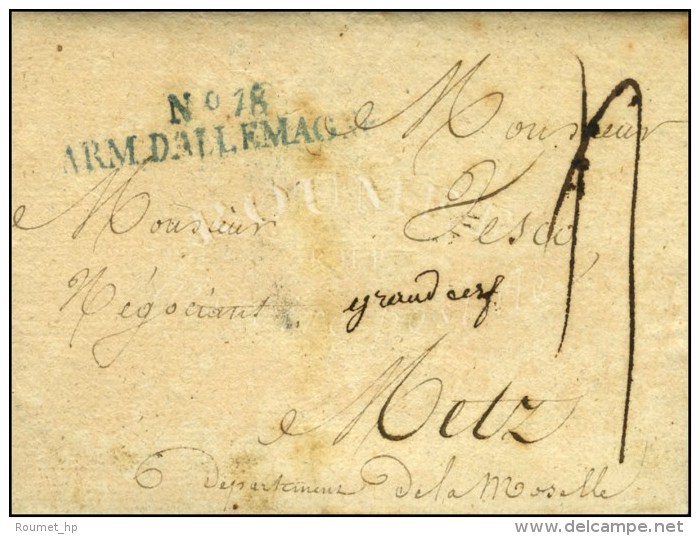 No 18
ARM. D'ALLEMAG
Monsieur
Monsieur
Négociant. grand cerf
Metz
Departement de la Moselle
Roumet_hp
www.delcampe.net